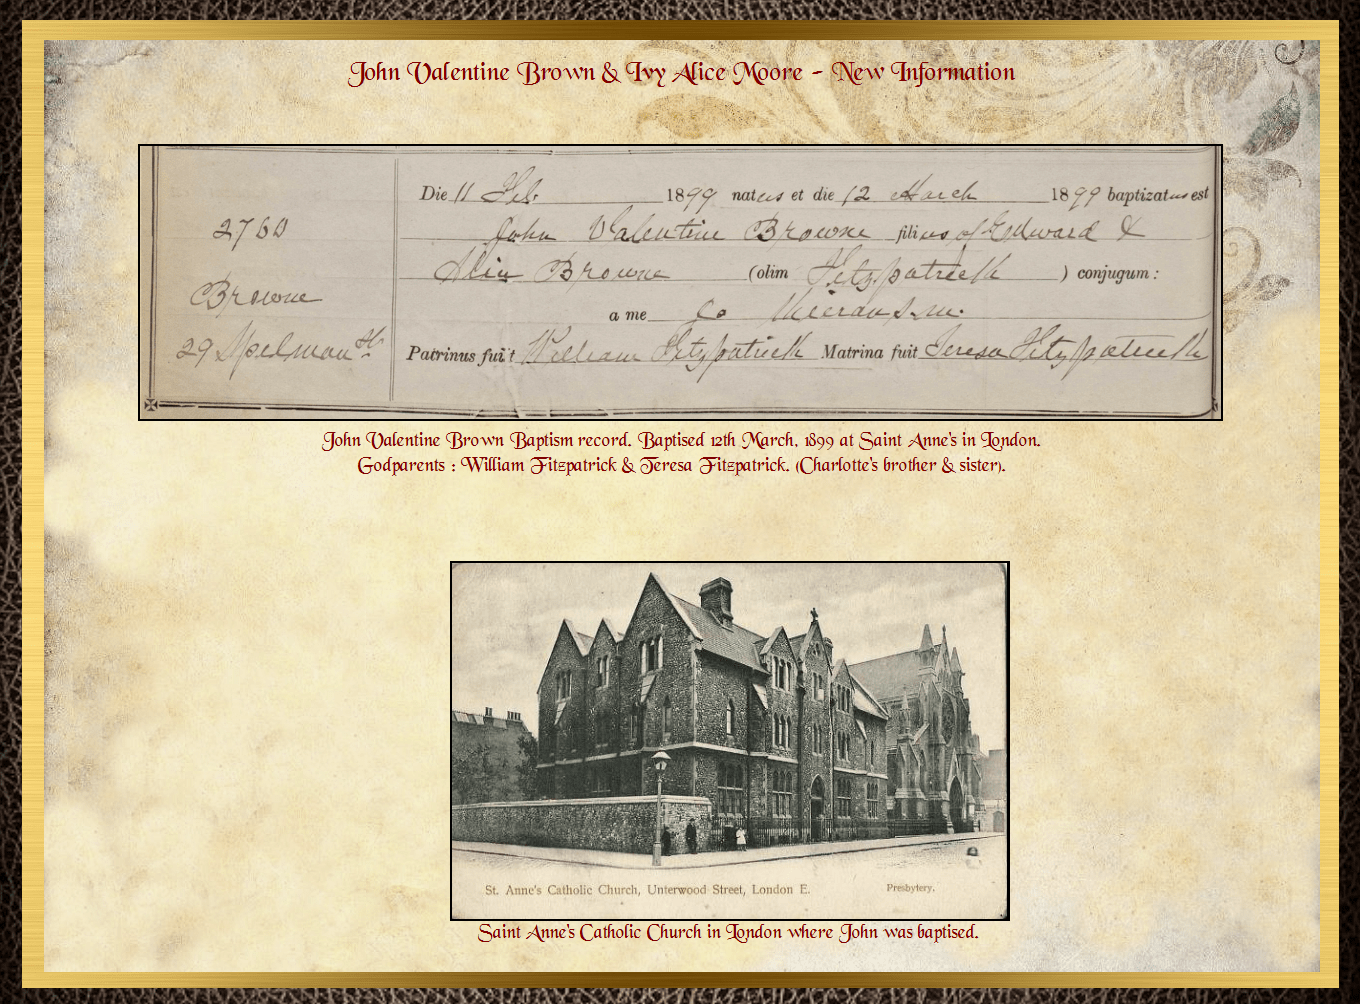 John Valentine Brown & Ivy Alice Moore - New Information
Die 11 Feb. 1899 natus et die 12 March 1899 baptizatus est
2760
John Valentine Browne filius of Edward &
Browne (olim Fitzpatrick ) conjugum :
Browne
a me
29 Spelman St.
Patrinus fuit William Fitzpatrick Matrina fuit Teresa Fitzpatrick
John Valentine Brown Baptism record. Baptised 12th March, 1899 at Saint Anne's in London.
Godparents : William Fitzpatrick & Teresa Fitzpatrick. (Charlotte's brother & sister).
St. Anne's Catholic Church, Unterwood Street, London E.
Presbytery.
Saint Anne's Catholic Church in London where John was baptised.